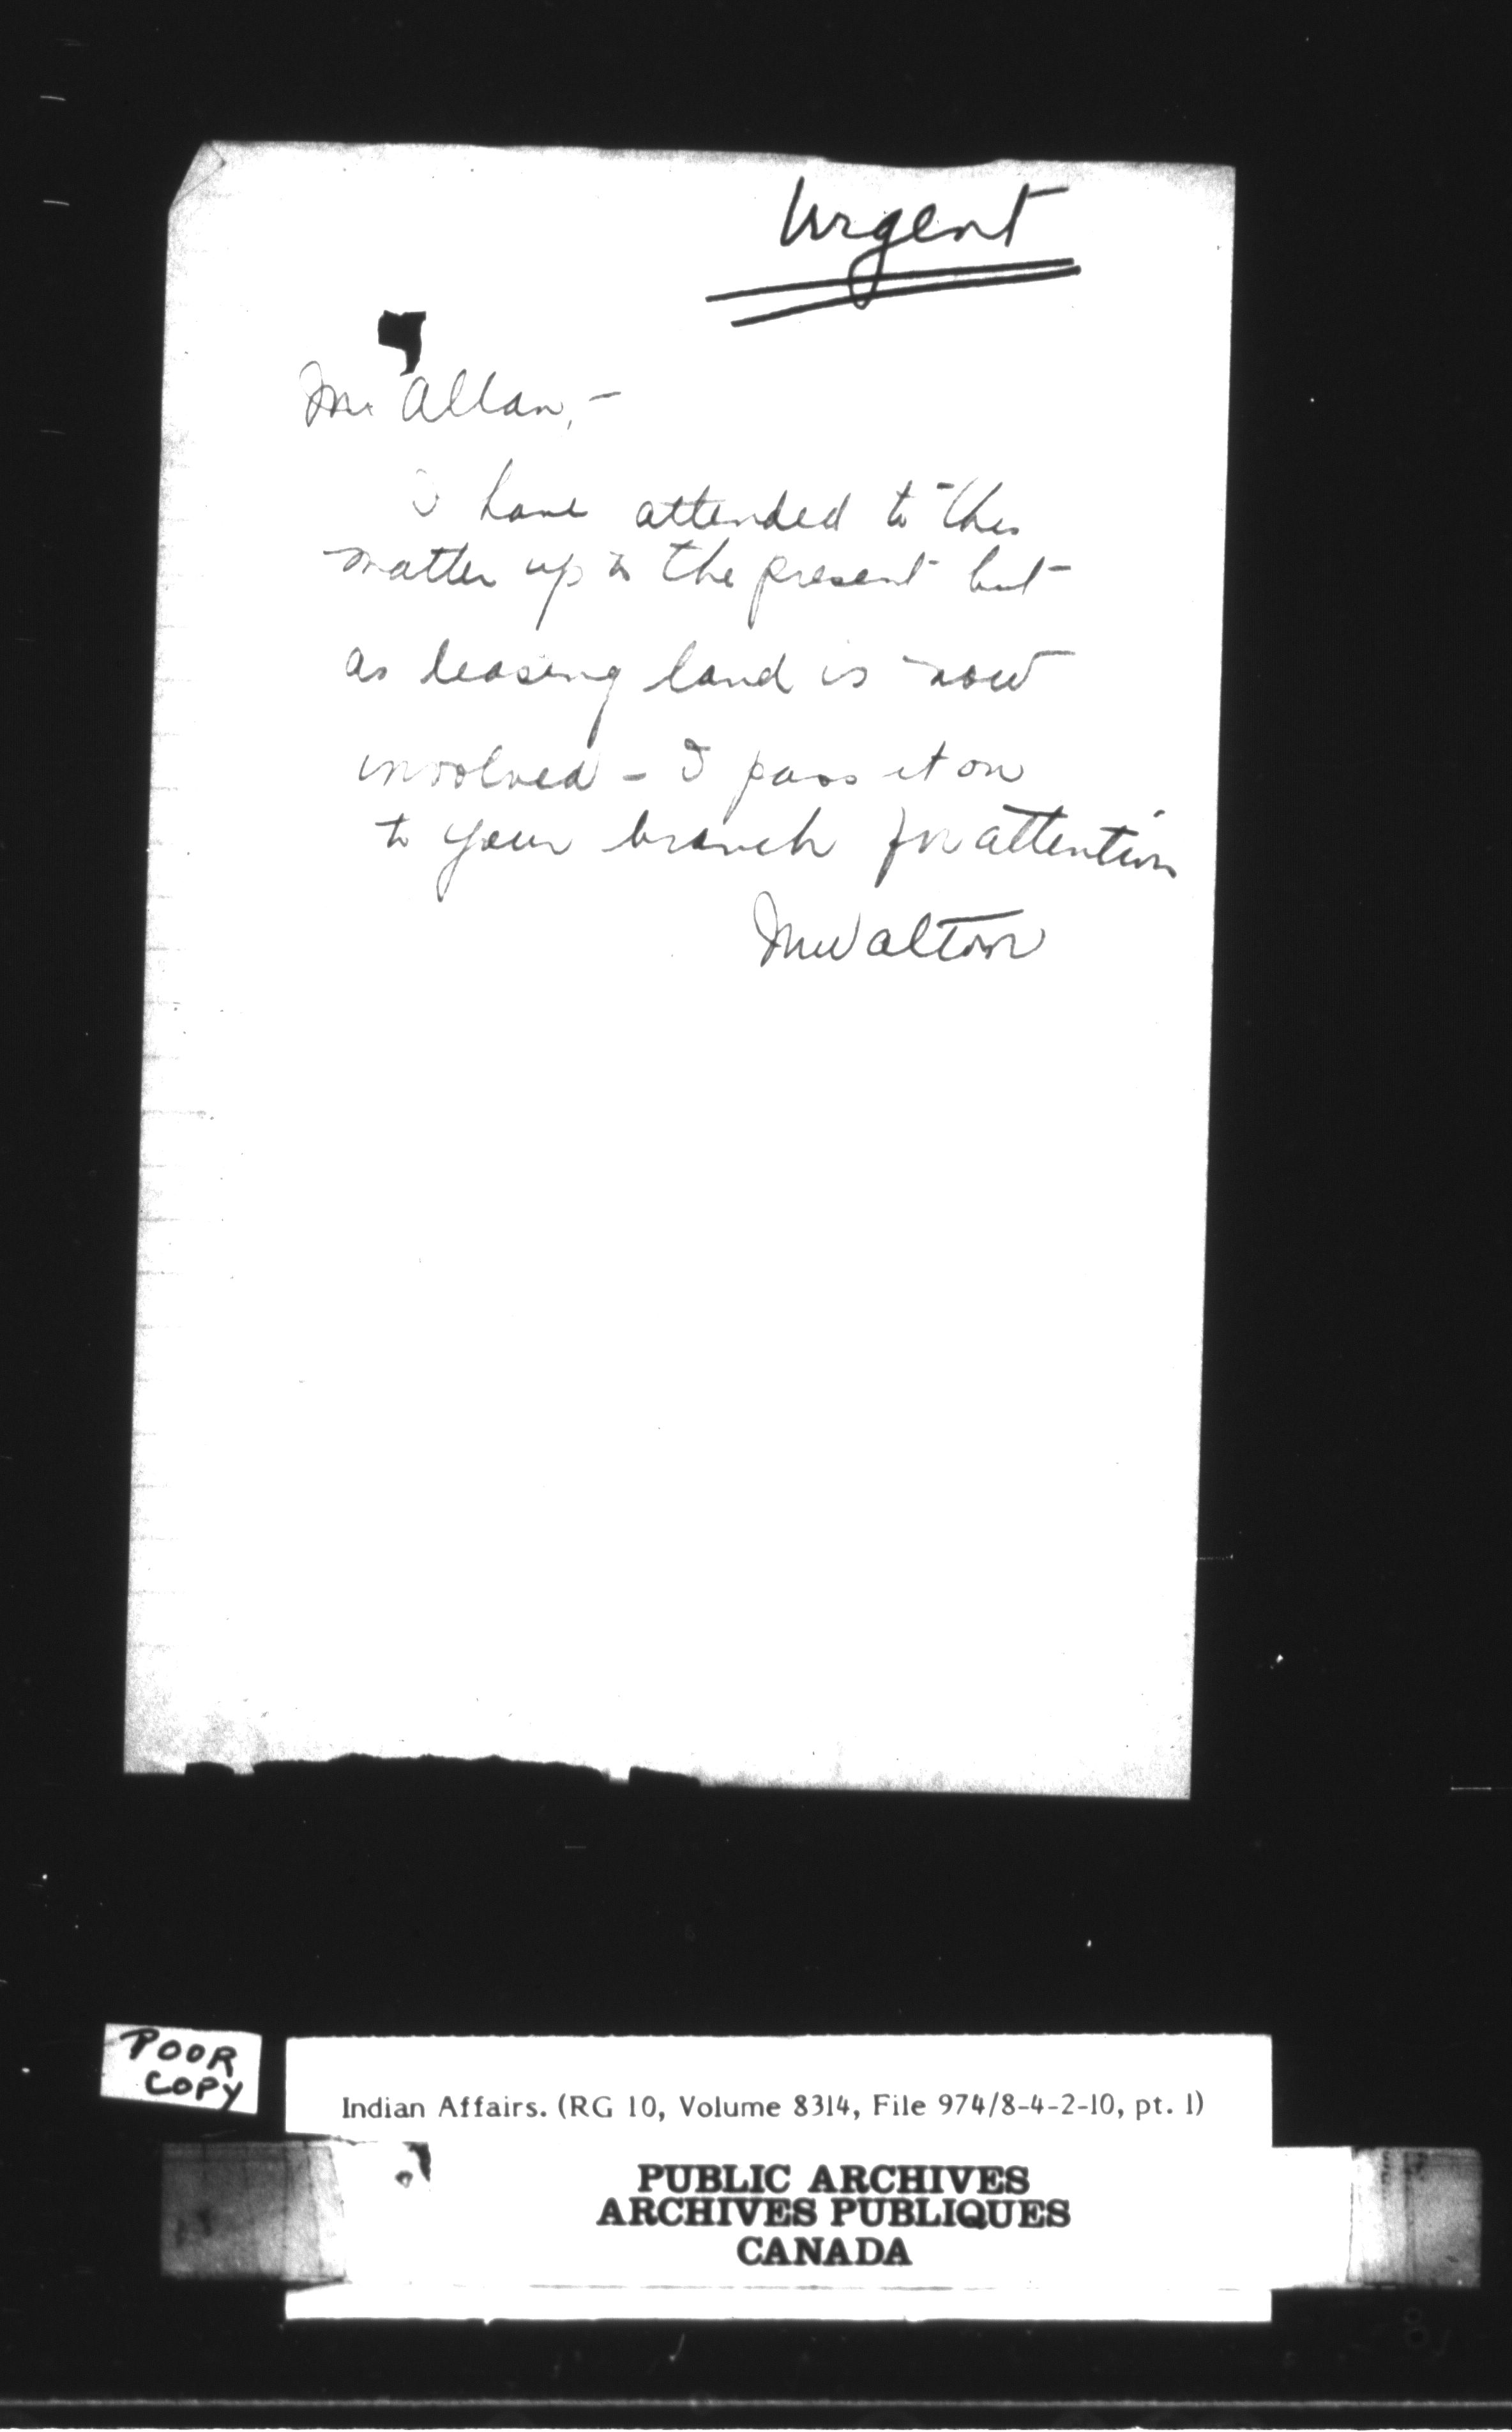 Urgent
Mr Allan, -
I have attended to this
matter up to the present but
as leasing land is now
involved - I pass it on
to your branch for attention
MWalton
POOR
COPY
Indian Affairs. (RG 10, Volume 8314, File 974/8-4-2-10, pt. 1)
PUBLIC ARCHIVES
ARCHIVES PUBLIQUES
CANADA